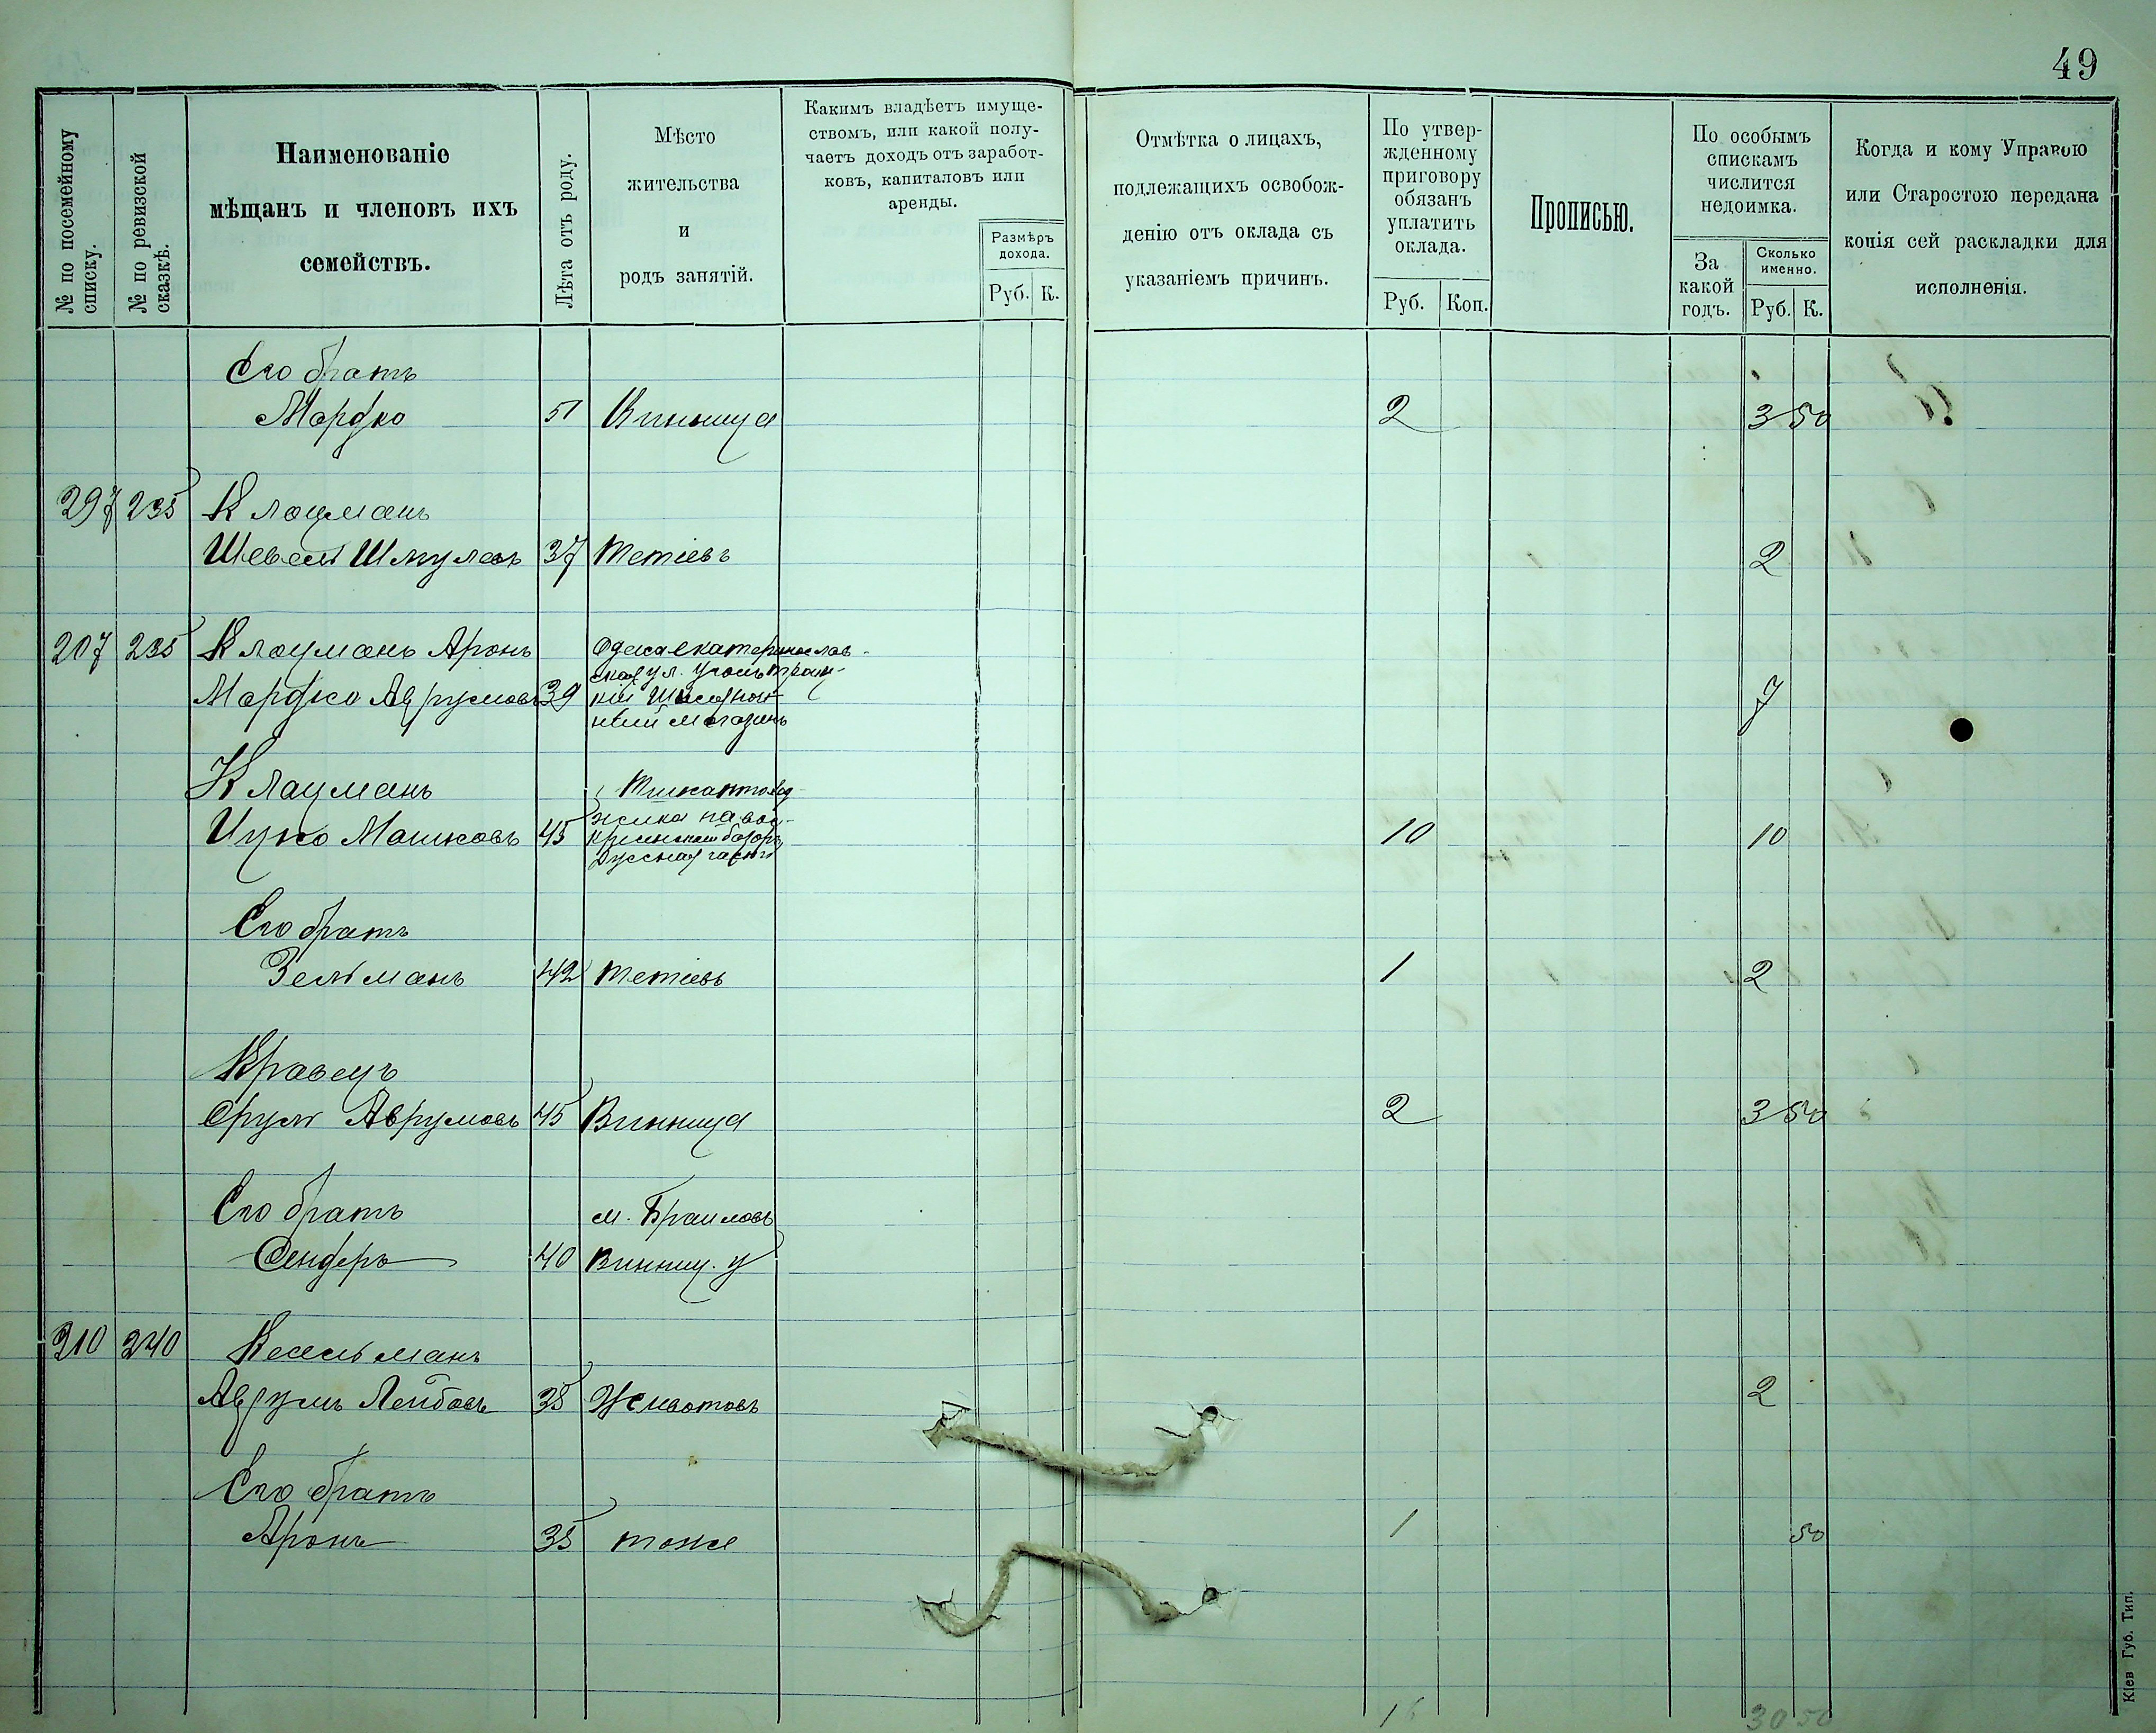 49
№ по посемейному списку.
№ по ревизской сказкѣ.
Наименованіе
мѣщанъ и членовъ ихъ
семействъ.
Лѣта отъ роду.
Мѣсто
жительства
и
родъ занятій.
Какимъ владѣетъ имуще-
ствомъ, или какой полу-
чаетъ доходъ отъ заработ-
ковъ, капиталовъ или
аренды.
Размѣръ
дохода.
Руб. К.
Отмѣтка о лицахъ,
подлежащихъ освобож-
денію отъ оклада съ
указаніемъ причинъ.
По утвер-
жденному
приговору
обязанъ
уплатить
оклада.
Руб. Коп.
Прописью.
По особымъ
спискамъ
числится
недоимка.
За
какой
годъ.
Сколько
именно.
Руб. К.
Когда и кому Управою
или Старостою передана
копія сей раскладки для
исполненія.
Его братъ
Мордко 51 Винница 2 3 50
297 235 Клоцманъ
Шевель Шмулевъ 37 Тетіевъ 2
207 235 Клоцманъ Аронъ
Мордко Аврумовъ 39 7
Одесса екатеринослав-
ская ул. уголъ
магазинъ
Клоцманъ
Ицко Мошковъ 45 10 10
базаръ
Его братъ
Зельманъ 42 Тетіевъ 1 2
Кравецъ
Сруль Аврумовъ 45 Винница 2 3 50
Его братъ м. Браиловъ
Сендеръ 40 Винниц. у
210 240 Кесельманъ
Аврумъ Лейбовъ 38 Животовъ 2
Его братъ
Аронъ 35 тоже 1 50
30 50
Кіев Губ. Тип.